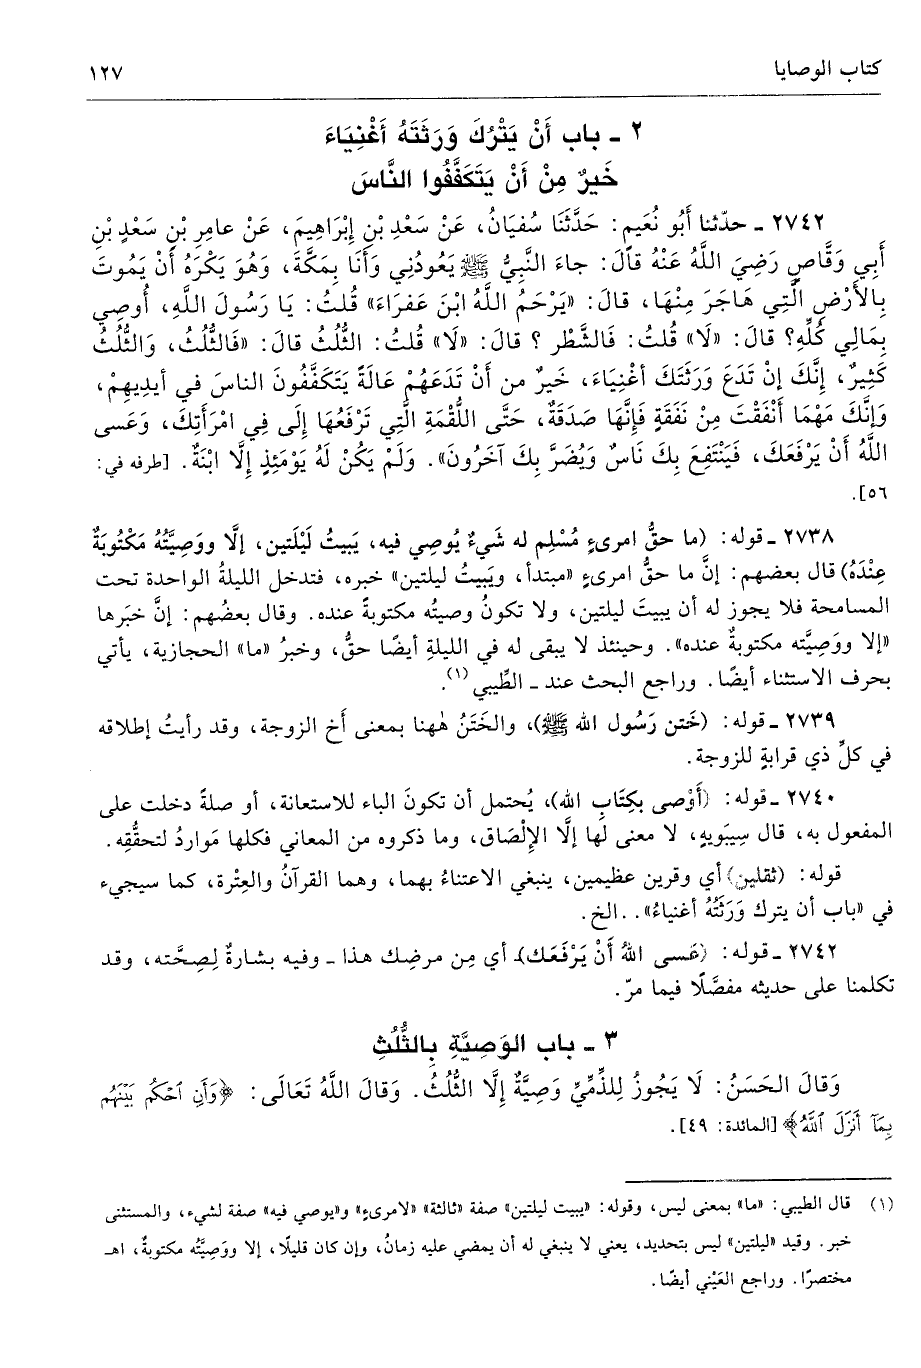 كتاب الوصايا ١٢٧
٢ ـ باب أَنْ يَتْرُكَ وَرَثَتَهُ أَغْنِيَاءَ
خَيرٌ مِنْ أَنْ يَتَكَفَّفُوا النَّاسَ
٢٧٤٢ ـ حدّثنا أَبُو نُعَيم: حَدَّثَنَا سُفيَانُ، عَنْ سَعْدِ بْنِ إِبْرَاهِيمَ، عَنْ عامِرِ بْنِ سَعْدِ بْنِ
أَبِي وَقَّاصٍ رَضِيَ اللَّهُ عَنْهُ قالَ: جاءَ النَّبِيُّ ﷺ يَعُودُنِي وَأَنَا بِمَكَّةَ، وَهُوَ يَكْرَهُ أَنْ يَمُوتَ
بِالأَرْضِ الَّتِي هَاجَرَ مِنْهَا، قالَ: «يَرْحَمُ اللَّهُ ابْنَ عَفرَاءَ» قُلتُ: يَا رَسُولَ اللَّهِ، أُوصِي
بِمَالِي كُلِّهِ؟ قالَ: «لَا» قُلتُ: فَالشَّطْر ؟ قالَ: «لَا» قُلتُ: الثُّلُثُ قالَ: «فَالثُّلُثُ، وَالثُّلُثُ
كَثِيرٌ، إِنَّكَ إِنْ تَدَعَ وَرَثَتَكَ أَغْنِيَاءَ، خَيرٌ من أَنْ تَدَعَهُمْ عَالَةً يَتَكَفَّفُونَ الناسَ في أَيدِيهِمْ،
وَإِنَّكَ مَهْمَا أَنْفَقْتَ مِنْ نَفَقَةٍ فَإِنَّهَا صَدَقَةٌ، حَتَّى اللُّقْمَةِ الَّتِي تَرْفَعُهَا إِلَى فِي امْرَأَتِكَ، وَعَسى
اللَّهُ أَنْ يَرْفَعَكَ، فَيَنْتَفِعَ بِكَ نَاسٌ وَيُضَرَّ بِكَ آخَرُونَ». وَلَمْ يَكُنْ لَهُ يَوْمَئِذٍ إِلَّا ابْنَةٌ. [طرفه في:
٥٦].
٢٧٣٨ ـ قوله: (ما حقُّ امرىءٍ مُسْلِمٍ له شَيءٌ يُوصِي فيه، يَبِيتُ لَيْلَتَين، إلَّا ووَصِيَّتُهُ مَكْتُوبَةٌ
عِنْدَهُ) قال بعضهم: إنَّ ما حقُّ امرىءٍ «مبتدأ، ويَبيتُ ليلتين» خبره، فتدخل الليلةُ الواحدة تحت
المسامحة فلا يجوز له أن يبيتَ ليلتين، ولا تكونُ وصيتُه مكتوبةً عنده. وقال بعضُهم: إنَّ خبَرها
«إلا ووَصِيَّته مكتوبةٌ عنده». وحينئذ لا يبقى له في الليلةِ أيضًا حقٌّ، وخبرُ «ما» الحجازية، يأتي
بحرف الاستثناء أيضًا. وراجع البحث عند ـ الطِّيبي(١).
٢٧٣٩ ـ قوله: (خَتن رَسُول الله ﷺ)، والخَتَنُ هٰهنا بمعنى أَخ الزوجة، وقد رأيتُ إطلاقه
في كلِّ ذي قرابةٍ للزوجة.
٢٧٤٠ ـ قوله: (أَوْصى بِكِتَابِ الله)، يُحتمل أن تكونَ الباء للاستعانة، أو صلةً دخلت على
المفعول به، قال سِيبَويهِ، لا معنى لَها إلَّا الإلْصَاق، وما ذكروه من المعاني فكلها مَواردُ لتحقُّقِه.
قوله: (ثقلين) أي وقرين عظيمين، ينبغي الاعتناءُ بهما، وهما القرآنُ والعِتْرة، كما سيجيء
في «باب أن يترك وَرَثَتُهُ أغنياءُ». . الخ.
٢٧٤٢ ـ قوله: (عَسى اللَّهُ أَنْ يَرْفَعَك)ـ أي مِن مرضِك هذا ـ وفيه بشارةٌ لِصِحَّته، وقد
تكلمنا على حديثه مفصَّلًا فيما مرّ.
٣ ـ باب الوَصِيَّةِ بِالثُّلُثِ
وَقالَ الحَسَنُ: لَا يَجُوزُ لِلذِّمِّيِّ وَصِيَّةٌ إِلَّا الثُّلُثُ. وَقالَ اللَّهُ تَعَالَى: ﴿وَأَنِ ٱحْكُم بَيْنَهُم
بِمَآ أَنزَلَ ٱللَّهُ﴾ [المائدة: ٤٩].
(١) قال الطيبي: «ما» بمعنى ليس، وقوله: «يبيت ليلتين» صفة «ثالثة» «لامرىءٍ» و«يوصي فيه» صفة لشيء، والمستثنى
خبر. وقيد «ليلتين» ليس بتحديد، يعني لا ينبغي له أن يمضي عليه زمانُ، وإن كان قليلًا، إلا ووَصِيَّتُه مكتوبةٌ، اهـ
مختصرًا. وراجع العَيْني أيضًا.